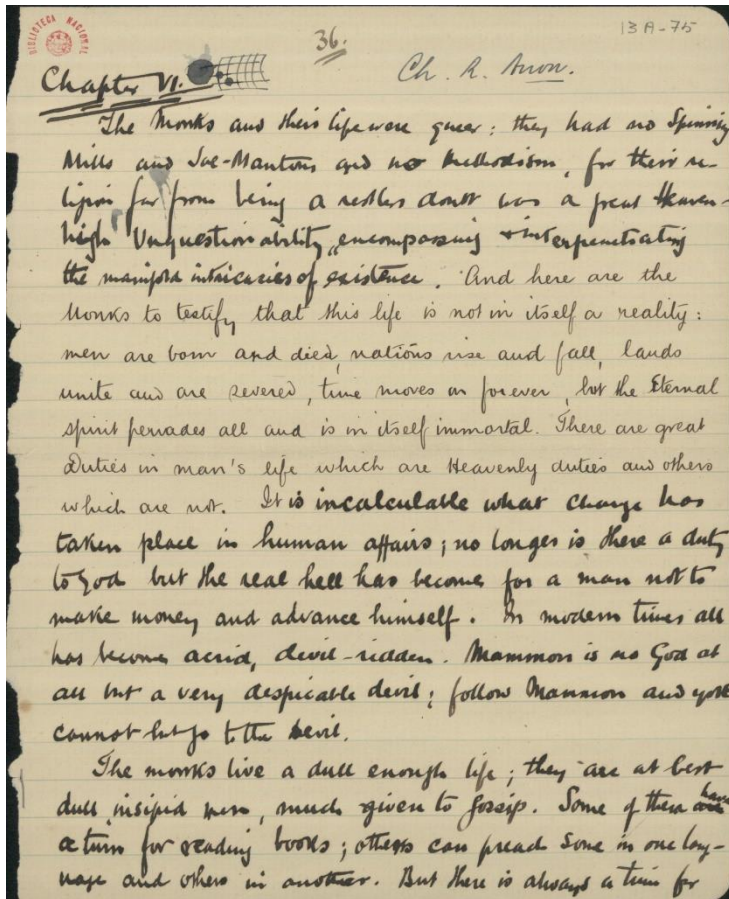 BIBLIOTECA NACIONAL
36.
13A-75
Chapter VI.
Ch. R. Anon.
The Monks and their life were queer: they had no Spinning
Mills and Joe-Mantons and no Methodism, for their re-
ligion far from being a restless doubt was a great Heaven-
high Unquestionability, encompassing & interpenetrating
the manifold intricacies of existence. And here are the
Monks to testify that this life is not in itself a reality:
men are born and died, nations rise and fall, lands
unite and are severed, time moves on forever, but the Eternal
spirit pervades all and is in itself immortal. There are great
Duties in man's life which are Heavenly duties and others
which are not. It is incalculable what change has
taken place in human affairs; no longer is there a duty
to God but the real hell has become for a man not to
make money and advance himself. In modern times all
has become acrid, devil-ridden. Mammon is no God at
all but a very despicable devil; follow Mammon and you
cannot but go to the Devil.
The monks live a dull enough life; they are at best
dull, insipid men, much given to gossip. Some of them have
a turn for reading books; others can preach some in one lang-
uage and others in another. But there is always a time for